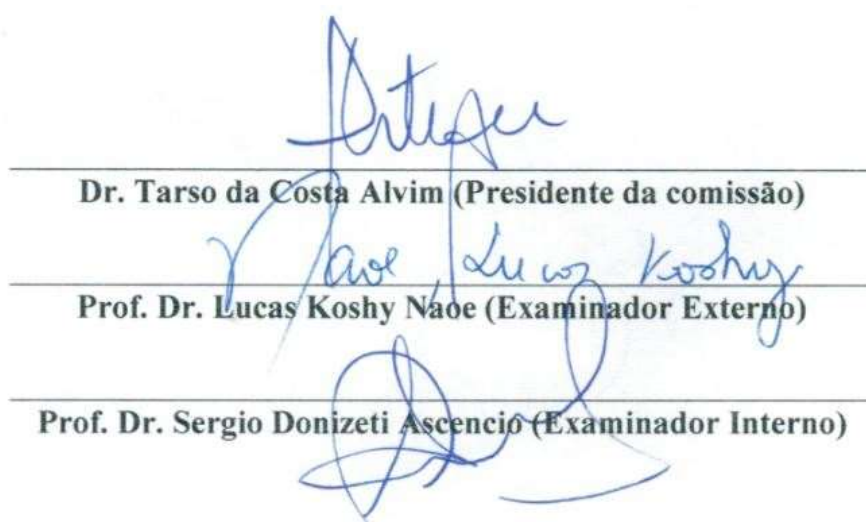 Dr. Tarso da Costa Alvim (Presidente da comissão)
Naoe, Lucas Koshy
Prof. Dr. Lucas Koshy Naoe (Examinador Externo)
Prof. Dr. Sergio Donizeti Ascencio (Examinador Interno)